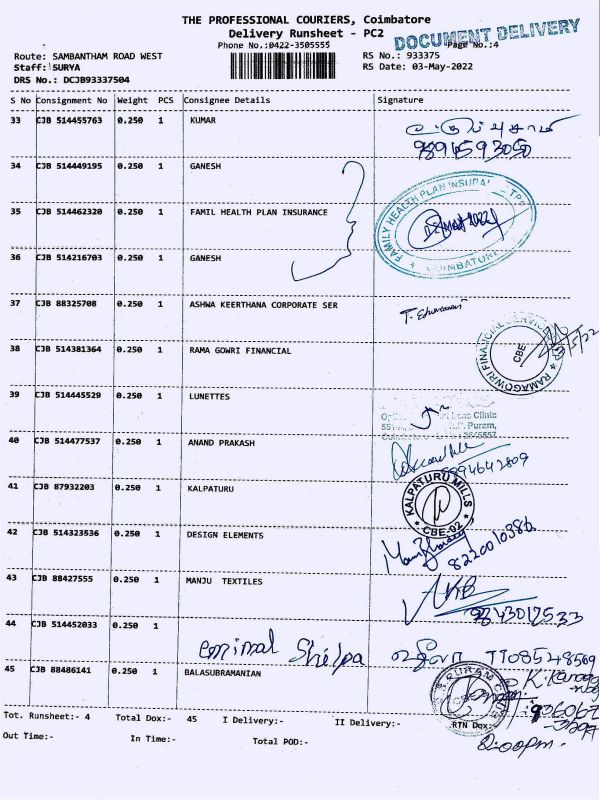 THE PROFESSIONAL COURIERS, Coimbatore
Delivery Runsheet - PC2
DOCUMENT DELIVERY
Phone No.:0422-3505555
Page No.:4
Route: SAMBANTHAM ROAD WEST
RS No.: 933375
Staff: SURYA
RS Date: 03-May-2022
DRS No.: DCJB93337504
S No Consignment No Weight PCS Consignee Details Signature
33 CJB 514455763 0.250 1 KUMAR
9894593050
34 CJB 514449195 0.250 1 GANESH
35 CJB 514462320 0.250 1 FAMIL HEALTH PLAN INSURANCE
FAMILY HEALTH PLAN INSURA TPA
COIMBATORE
36 CJB 514216703 0.250 1 GANESH
37 CJB 88325708 0.250 1 ASHWA KEERTHANA CORPORATE SER
38 CJB 514381364 0.250 1 RAMA GOWRI FINANCIAL
RAMAGOWRI FINANCIAL SERVICES
CBE
39 CJB 514445529 0.250 1 LUNETTES
Lens Clinic
Puram,
40 CJB 514477537 0.250 1 ANAND PRAKASH
9894642809
41 CJB 87932203 0.250 1 KALPATURU
KALPATURU MILLS
CBE-02
42 CJB 514323536 0.250 1 DESIGN ELEMENTS
8220010386
43 CJB 88427555 0.250 1 MANJU TEXTILES
9843017533
44 CJB 514452033 0.250 1
Shilpa
7708548569
45 CJB 88486141 0.250 1 BALASUBRAMANIAN
Tot. Runsheet:- 4 Total Dox:- 45 I Delivery:- II Delivery:- RTN Dox:
Out Time:- In Time:- Total POD:-
2:00pm.